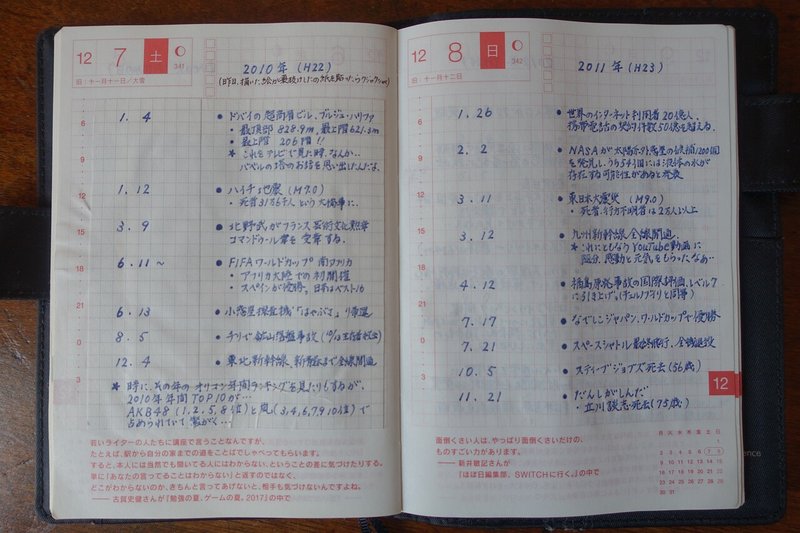 12 7 土
341
旧:十一月十一日/大雪
2010年 (H22)
(昨日、描いた絵が裏抜けしたので紙を貼ったらクシャクシャに)
1. 4
● ドバイの超高層ビル、ブルジュ・ハリファ
・最頂部 828.9m、最上階621.3m
・最上階 206階!!
* これをテレビで見た時、なんか…
バベルの塔のお話を思い出したんだな。
1. 12
● ハイチ地震 (M7.0)
・死者31万6千人という大惨事に。
3. 9
● 北野武がフランス芸術文化勲章
コマンドゥール章を受章する。
6. 11 ～
● FIFAワールドカップ 南アフリカ
・アフリカ大陸での初開催
・スペインが優勝。日本はベスト16
6. 13
● 小惑星探査機「はやぶさ」帰還
8. 5
● チリで鉱山落盤事故
12. 4
● 東北新幹線、新青森まで全線開通
* 時に、その年のオリコン年間ランキングを見たりもするが、
2010年 年間TOP10が…
AKB48 (1,2,5,8位) と嵐 (3,4,6,7,9,10位) で
占められていて驚がく…
若いライターの人たちに講座で言うことなんですが、
たとえば、駅から自分の家までの道をことばでしゃべってもらいます。
すると、本人には当然でも聞いてる人にはわからない、ということの差に気づけたりする。
単に「あなたの言ってることはわからない」と返すのではなく、
どこがわからないのか、きちんと言ってあげないと、相手も気づけないんですよね。
── 古賀史健さんが『勉強の夏、ゲームの夏。2017』の中で
12 8 日
342
旧:十一月十二日
2011年 (H23)
1. 26
● 世界のインターネット利用者20億人、
携帯電話の契約件数50億を超える。
2. 2
● NASAが太陽系外惑星の候補1200個
を発見し、うち54個には液体の水が
存在する可能性があると発表
3. 11
● 東日本大震災 (M9.0)
・死者、行方不明者は2万人以上
3. 12
● 九州新幹線全線開通。
* これにともなうYouTube動画に
随分、感動と元気をもらったなあ…
4. 12
● 福島原発事故の国際評価、レベル7
に引き上げ。(チェルノブイリと同等)
7. 17
● なでしこジャパン、ワールドカップで優勝
7. 21
● スペースシャトル最終飛行、全機退役
10. 5
● スティーブ・ジョブズ死去 (56歳)
11. 21
● だんしがしんだ
・立川談志死去 (75歳)
12
面倒くさい人は、やっぱり面倒くさいだけの、
ものすごい力があります。
── 新井敏記さんが
『ほぼ日編集部、SWITCHに行く。』の中で
月 火 水 木 金 土 日
1
2 3 4 5 6 7 8
9 10 11 12 13 14 15
16 17 18 19 20 21 22
23 24 25 26 27 28 29
30 31